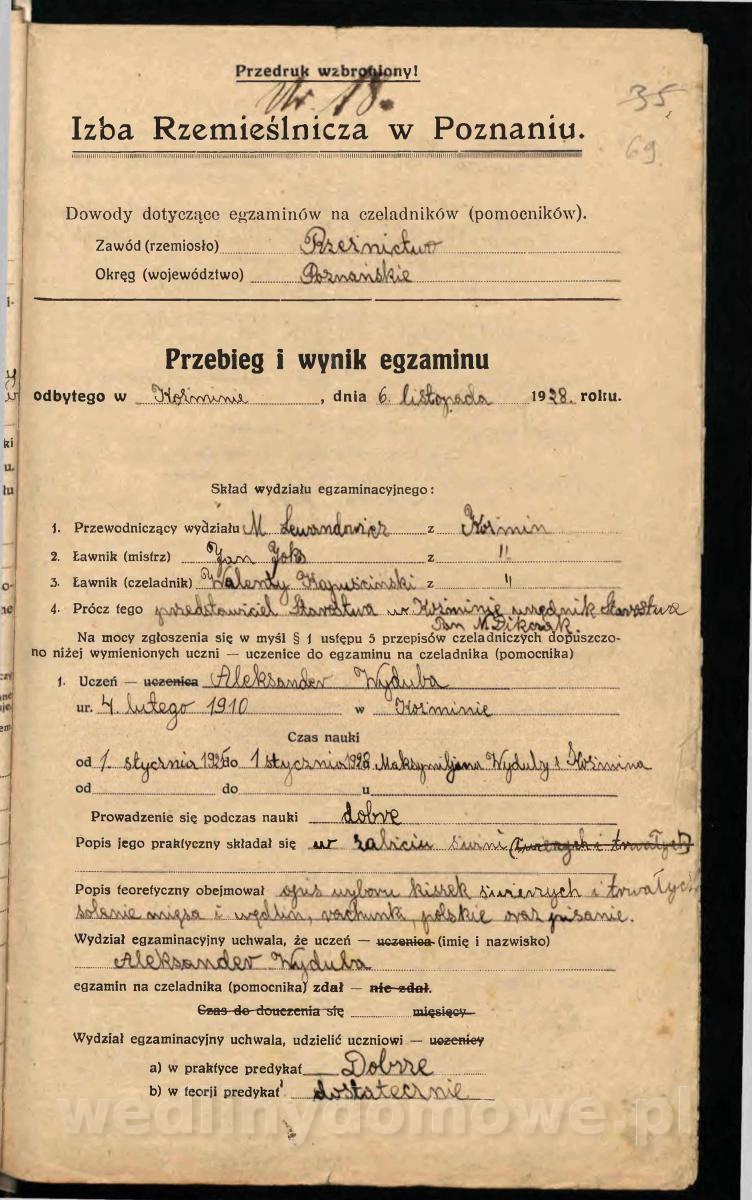 Przedruk wzbroniony!
Nr. 18.
35
69
Izba Rzemieślnicza w Poznaniu.
Dowody dotyczące egzaminów na czeladników (pomocników).
Zawód (rzemiosło) Rzeźnictwo
Okręg (województwo) Poznańskie
Przebieg i wynik egzaminu
odbytego w Koźminie, dnia 6 listopada 1928. roku.
Skład wydziału egzaminacyjnego:
1. Przewodniczący wydziału M Lewandowicz z Koźmin
2. Ławnik (mistrz) Jan z "
3. Ławnik (czeladnik) Walenty Kapuściński z "
4. Prócz tego przedstawiciel Starostwa w Koźminie urzędnik Starostwa
Pan N.
Na mocy zgłoszenia się w myśl § 1 ustępu 5 przepisów czeladniczych dopuszczo-
no niżej wymienionych uczni — uczenice do egzaminu na czeladnika (pomocnika)
1. Uczeń — uczenica Aleksander Wyduba
ur. 4 lutego 1910 w Koźminie
Czas nauki
od 1. stycznia 1925 do 1 stycznia 1928 u Maksymiljana Wyduby z Koźmina
od do u
Prowadzenie się podczas nauki dobre
Popis jego praktyczny składał się w zabiciu świni (świeżych i trwałych)
Popis teoretyczny obejmował opis wyboru kiszek świeżych i trwałych
solenie mięsa i wędlin, rachunki, polskie oraz pisanie.
Wydział egzaminacyjny uchwala, że uczeń — uczenica (imię i nazwisko)
Aleksander Wyduba
egzamin na czeladnika (pomocnika) zdał — nie zdał.
Czas do douczenia się miesięcy
Wydział egzaminacyjny uchwala, udzielić uczniowi — uczenicy
a) w praktyce predykat Dobrze
b) w teorji predykat dostatecznie
wedlinydomowe.pl